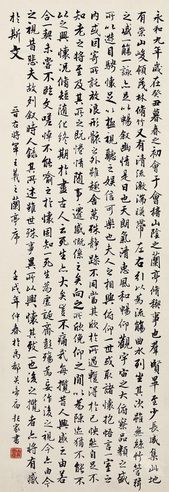 永和九年歲在癸丑暮春之初會于會稽山陰之蘭亭修稧事也羣賢畢至少長咸集此地
有崇山峻領茂林修竹又有清流激湍暎帶左右引以為流觴曲水列坐其次雖無絲竹管弦
之盛一觴一詠亦足以暢敘幽情是日也天朗氣清惠風和暢仰觀宇宙之大俯察品類之盛
所以遊目騁懷足以極視聽之娛信可樂也夫人之相與俯仰一世或取諸懷抱悟言一室之
內或因寄所託放浪形骸之外雖趣舍萬殊靜躁不同當其欣於所遇暫得於己快然自足不
知老之將至及其所之既惓情隨事遷感慨係之矣向之所欣俛仰之間以為陳迹猶不能不
以之興懷況脩短隨化終期於盡古人云死生亦大矣豈不痛哉每攬昔人興感之由若
合一契未嘗不臨文嗟悼不能喻之於懷固知一死生為虛誕齊彭殤為妄作後之視今亦由今
之視昔悲夫故列敘時人錄其所述雖世殊事異所以興懷其致一也後之攬者亦將有感
於斯文
晉右將軍王羲之蘭亭序 壬戌年仲春於